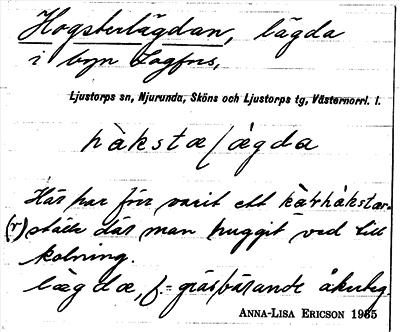 Hogsterlägdan, lägda
i byn Lagfors,
Ljustorps sn, Njurunda, Sköns och Ljustorps tg, Västernorrl. l.
hàkstæ/ægda
Här har förr varit ett kàrhàkstær-
(r) ställe där man huggit ved till
kolning.
lægdæ, f. = gräsbärande åkerteg.
ANNA-LISA ERICSON 1935